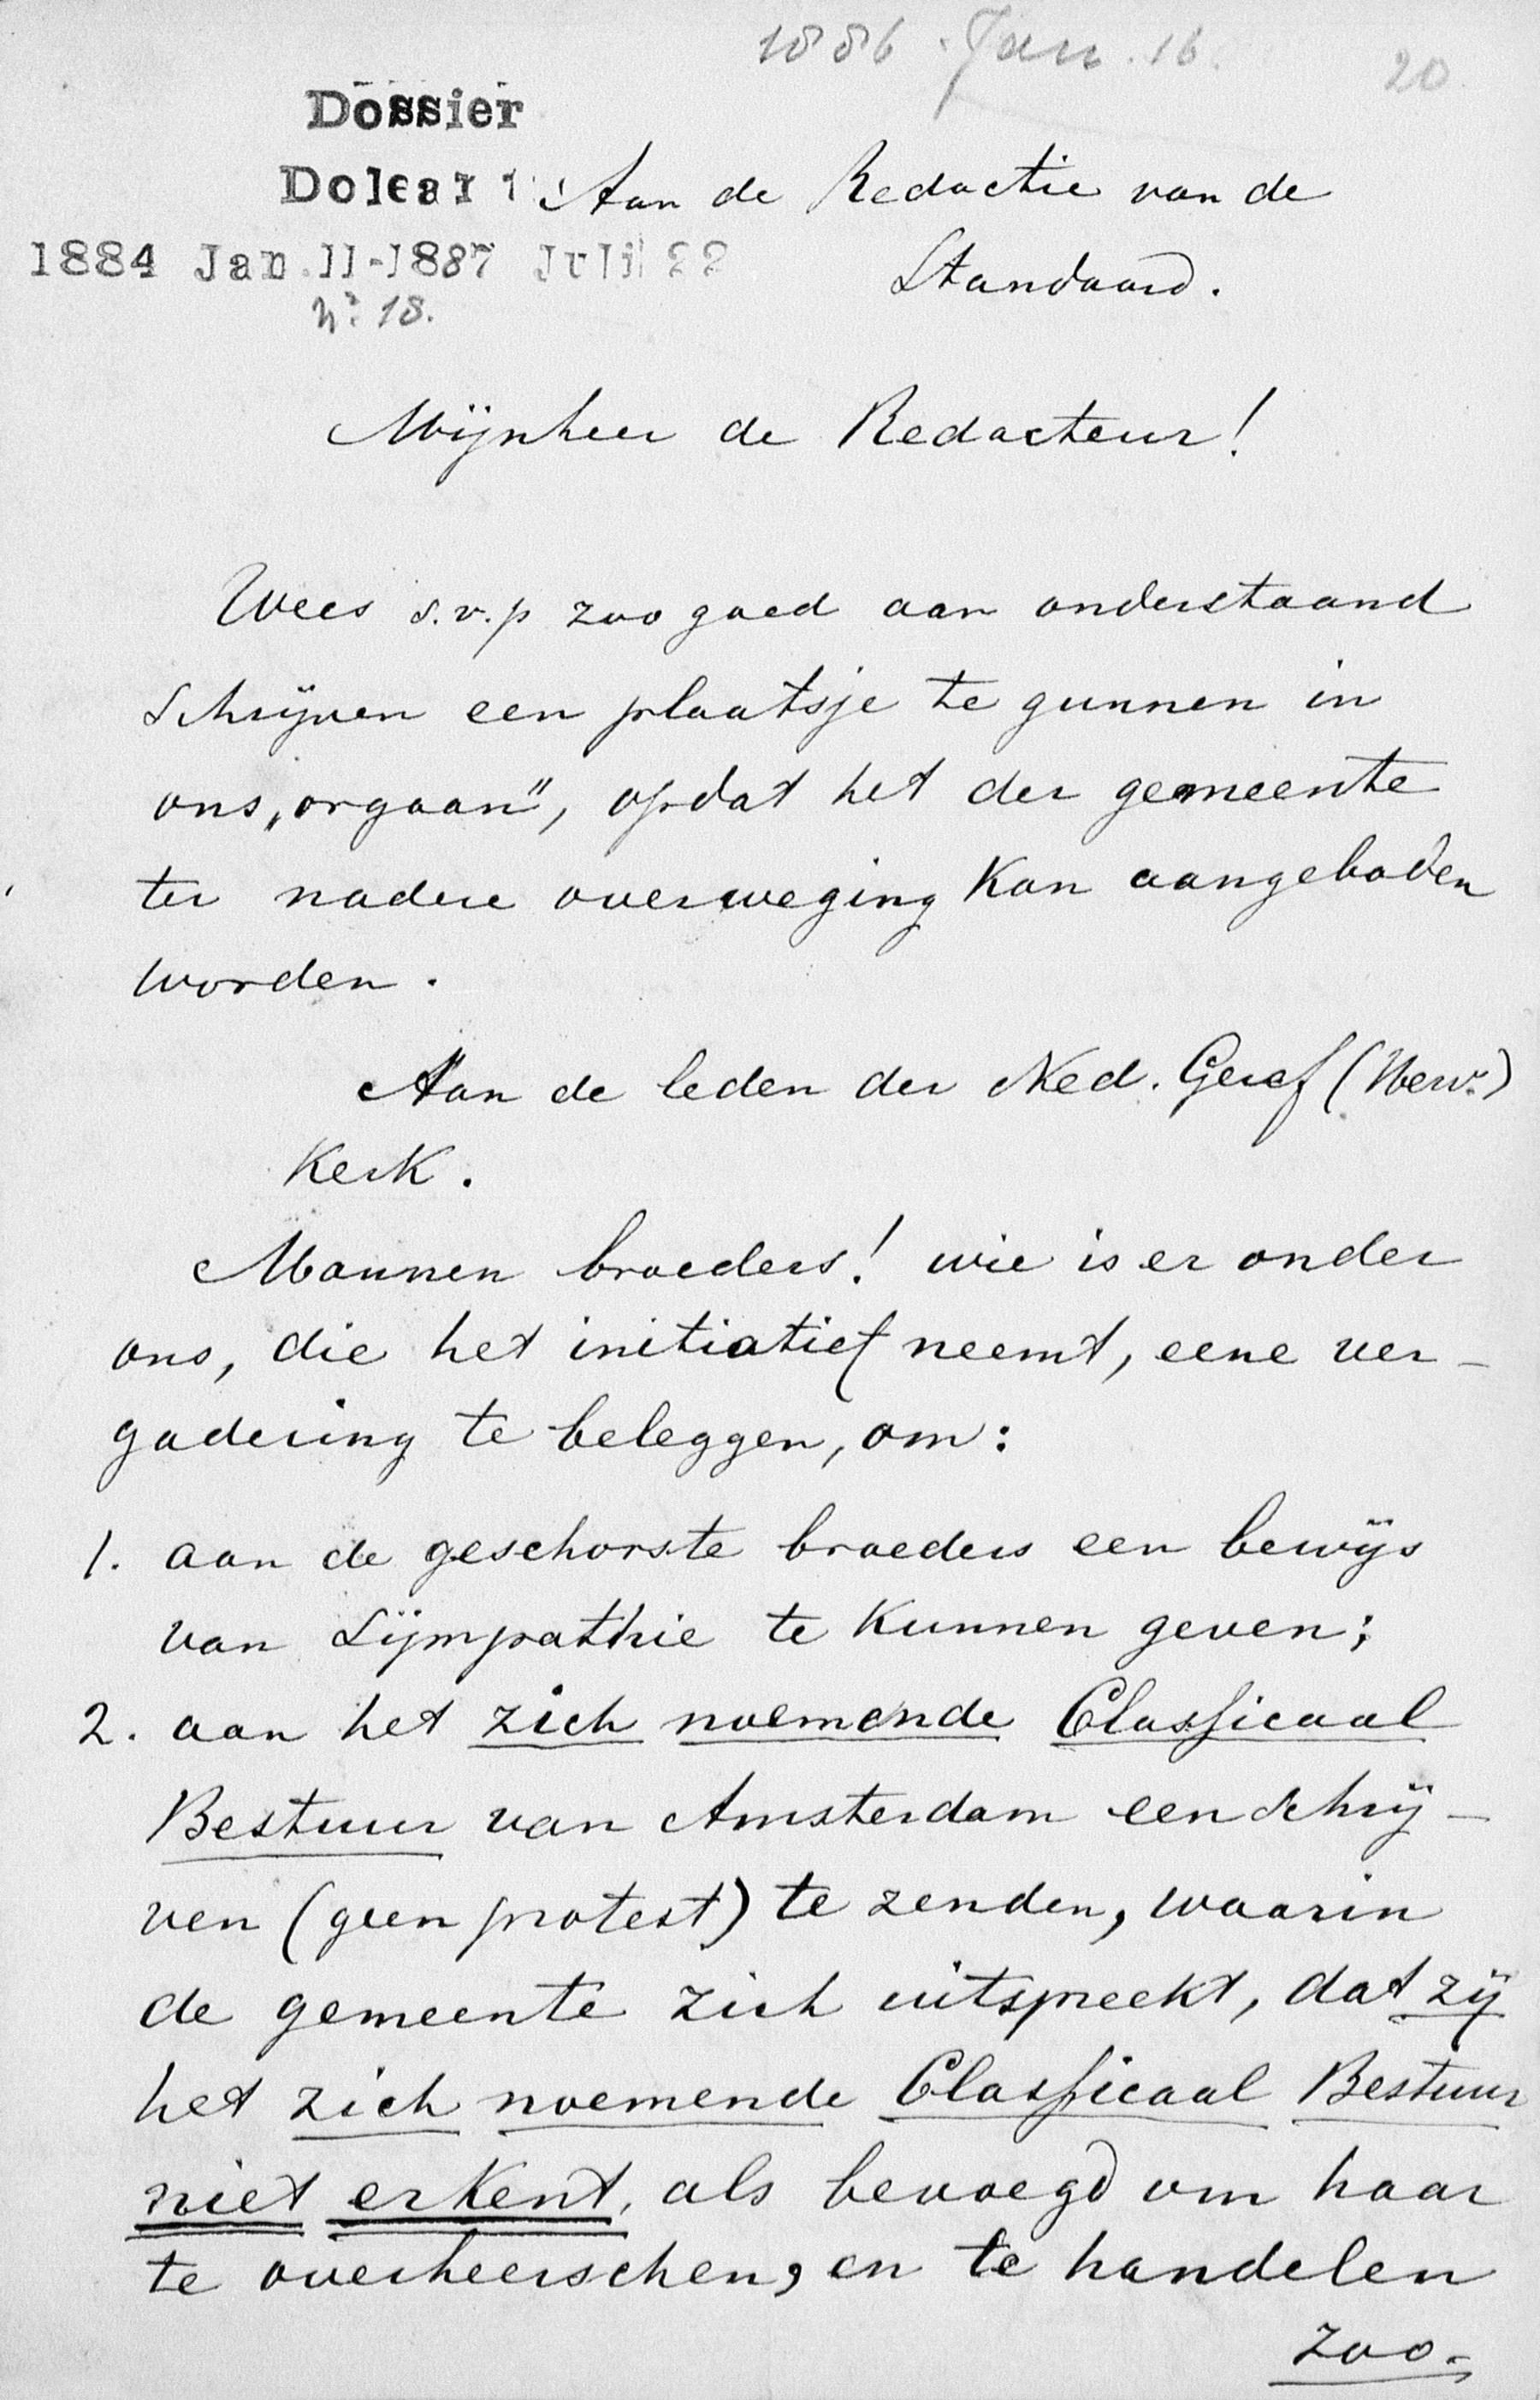 1886 Jan. 16.
20
Dossier
Doleant
Aan de Redactie van de
1884 Jan. 11-1887 Juli 22
Standaard.
No. 18.
Mijnheer de Redacteur!
Wees s.v.p zoo goed aan onderstaand
Schrijven een plaatsje te gunnen in
ons „orgaan", opdat het der gemeente
ter nadere overweging kan aangeboden
worden.
Aan de leden der Ned. Geref (Herv.)
Kerk.
Mannen broeders! wie is er onder
ons, die het initiatief neemt, eene ver-
gadering te beleggen, om:
1. aan de geschorste broeders een bewijs
van Sÿmpathie te kunnen geven;
2. aan het zich noemende Classicaal
Bestuur van Amsterdam een schrij-
ven (geen protest) te zenden, waarin
de gemeente zich uitspreekt, dat zij
het zich noemende Classicaal Bestuur
niet erkent, als bevoegd om haar
te overheerschen, en te handelen
zoo-